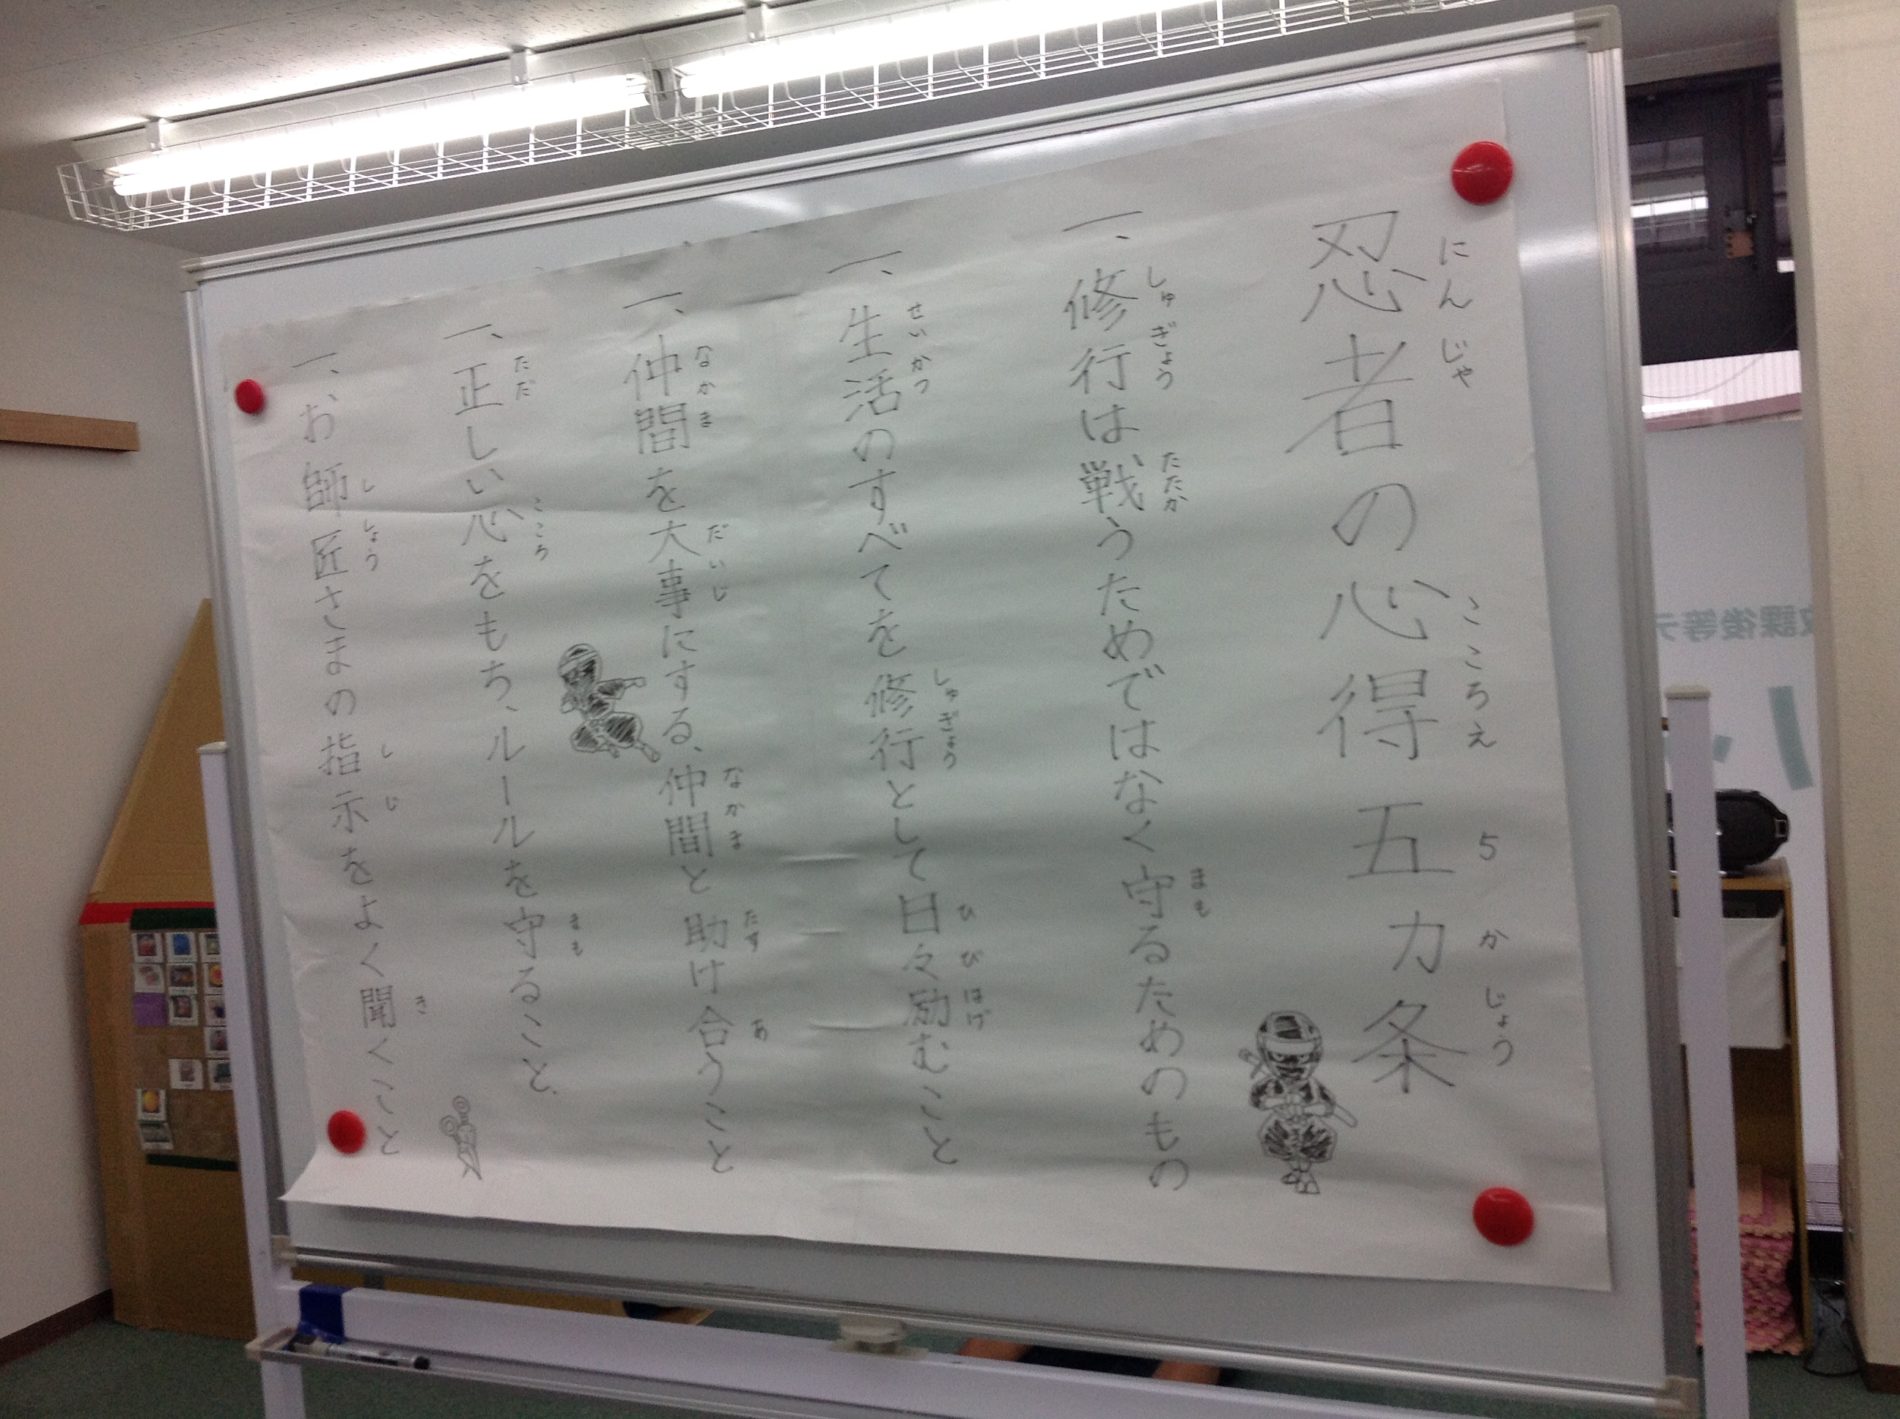 忍者の心得五カ条
にんじゃ こころえ 5かじょう
一、修行は、戦うためではなく守るためのもの
しゅぎょう たたか まも
一、生活のすべてを修行として日々励むこと
せいかつ しゅぎょう ひび はげ
一、仲間を大事にする、仲間と助け合うこと
なかま だいじ なかま たす あ
一、正しい心をもち、ルールを守ること、
ただ こころ まも
一、お師匠さまの指示をよく聞くこと
ししょう しじ き
課後等デ